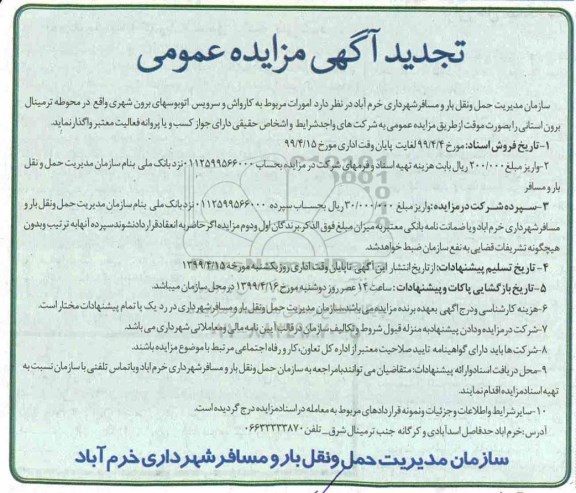 تجدید آگهی مزایده عمومی
سازمان مدیریت حمل ونقل بار و مسافر شهرداری خرم آباد در نظر دارد امورات مربوط به کارواش و سرویس اتوبوسهای برون شهری واقع در محوطه ترمینال
برون استانی را بصورت موقت از طریق مزایده عمومی به شرکت های واجدشرایط و اشخاص حقیقی دارای جواز کسب و یا پروانه فعالیت معتبر واگذار نماید.
۱-تاریخ فروش اسناد: مورخ ۹۹/۴/۴ لغایت پایان وقت اداری مورخ ۹۹/۴/۱۵
۲-واریز مبلغ ۲۰۰/۰۰۰ ریال بابت هزینه تهیه اسناد و فرمهای شرکت در مزایده بحساب ۰۱۱۲۵۹۹۵۶۶۰۰۰ نزد بانک ملی بنام سازمان مدیریت حمل و نقل
بار و مسافر
۳-سپرده شرکت در مزایده: واریز مبلغ ۳۰/۰۰۰/۰۰۰ ریال بحساب سپرده ۰۱۱۲۵۹۹۵۶۶۰۰۰ نزد بانک ملی بنام سازمان مدیریت حمل ونقل بار و
مسافر شهرداری خرم آباد و یا ضمانت نامه بانکی معتبر به میزان مبلغ فوق الذکر برندگان اول ودوم مزایده اگر حاضر به انعقاد قرارداد نشوند سپرده آنها به ترتیب و بدون
هیچگونه تشریفات قضایی به نفع سازمان ضبط خواهد شد.
۴- تاریخ تسلیم پیشنهادات: از تاریخ انتشار این آگهی تا پایان وقت اداری روز یکشنبه مورخه ۱۳۹۹/۴/۱۵
۵-تاریخ بازگشایی پاکات و پیشنهادات: ساعت ۱۴ عصر روز دوشنبه مورخ ۱۳۹۹/۴/۱۶ در محل سازمان میباشد.
۶-هزینه کارشناسی و درج آگهی بعهده برنده مزایده می باشد. سازمان مدیریت حمل ونقل بار و مسافر شهرداری در رد یک یا تمام پیشنهادات مختار است.
۷-شرکت در مزایده و دادن پیشنهاد به منزله قبول شروط و تکالیف سازمان در قالب آیین نامه مالی و معاملاتی شهرداری می باشد.
۸-شرکت ها باید دارای گواهینامه تایید صلاحیت معتبر از اداره کل تعاون، کار و رفاه اجتماعی مرتبط با موضوع مزایده باشند.
۹-محل دریافت اسناد وارائه پیشنهادات: متقاضیان می توانند با مراجعه به سازمان حمل ونقل بار و مسافر شهرداری خرم آباد و یا تماس تلفنی با سازمان نسبت به
تهیه اسناد مزایده اقدام نمایند.
۱۰-سایر شرایط و اطلاعات و جزئیات و نمونه قراردادهای مربوط به معامله در اسناد مزایده درج گردیده است.
آدرس: خرم آباد حدفاصل اسدآبادی و کرگانه جنب ترمینال شرق_ تلفن ۰۶۶۳۳۳۳۳۸۷۰
سازمان مدیریت حمل ونقل بار و مسافر شهرداری خرم آباد